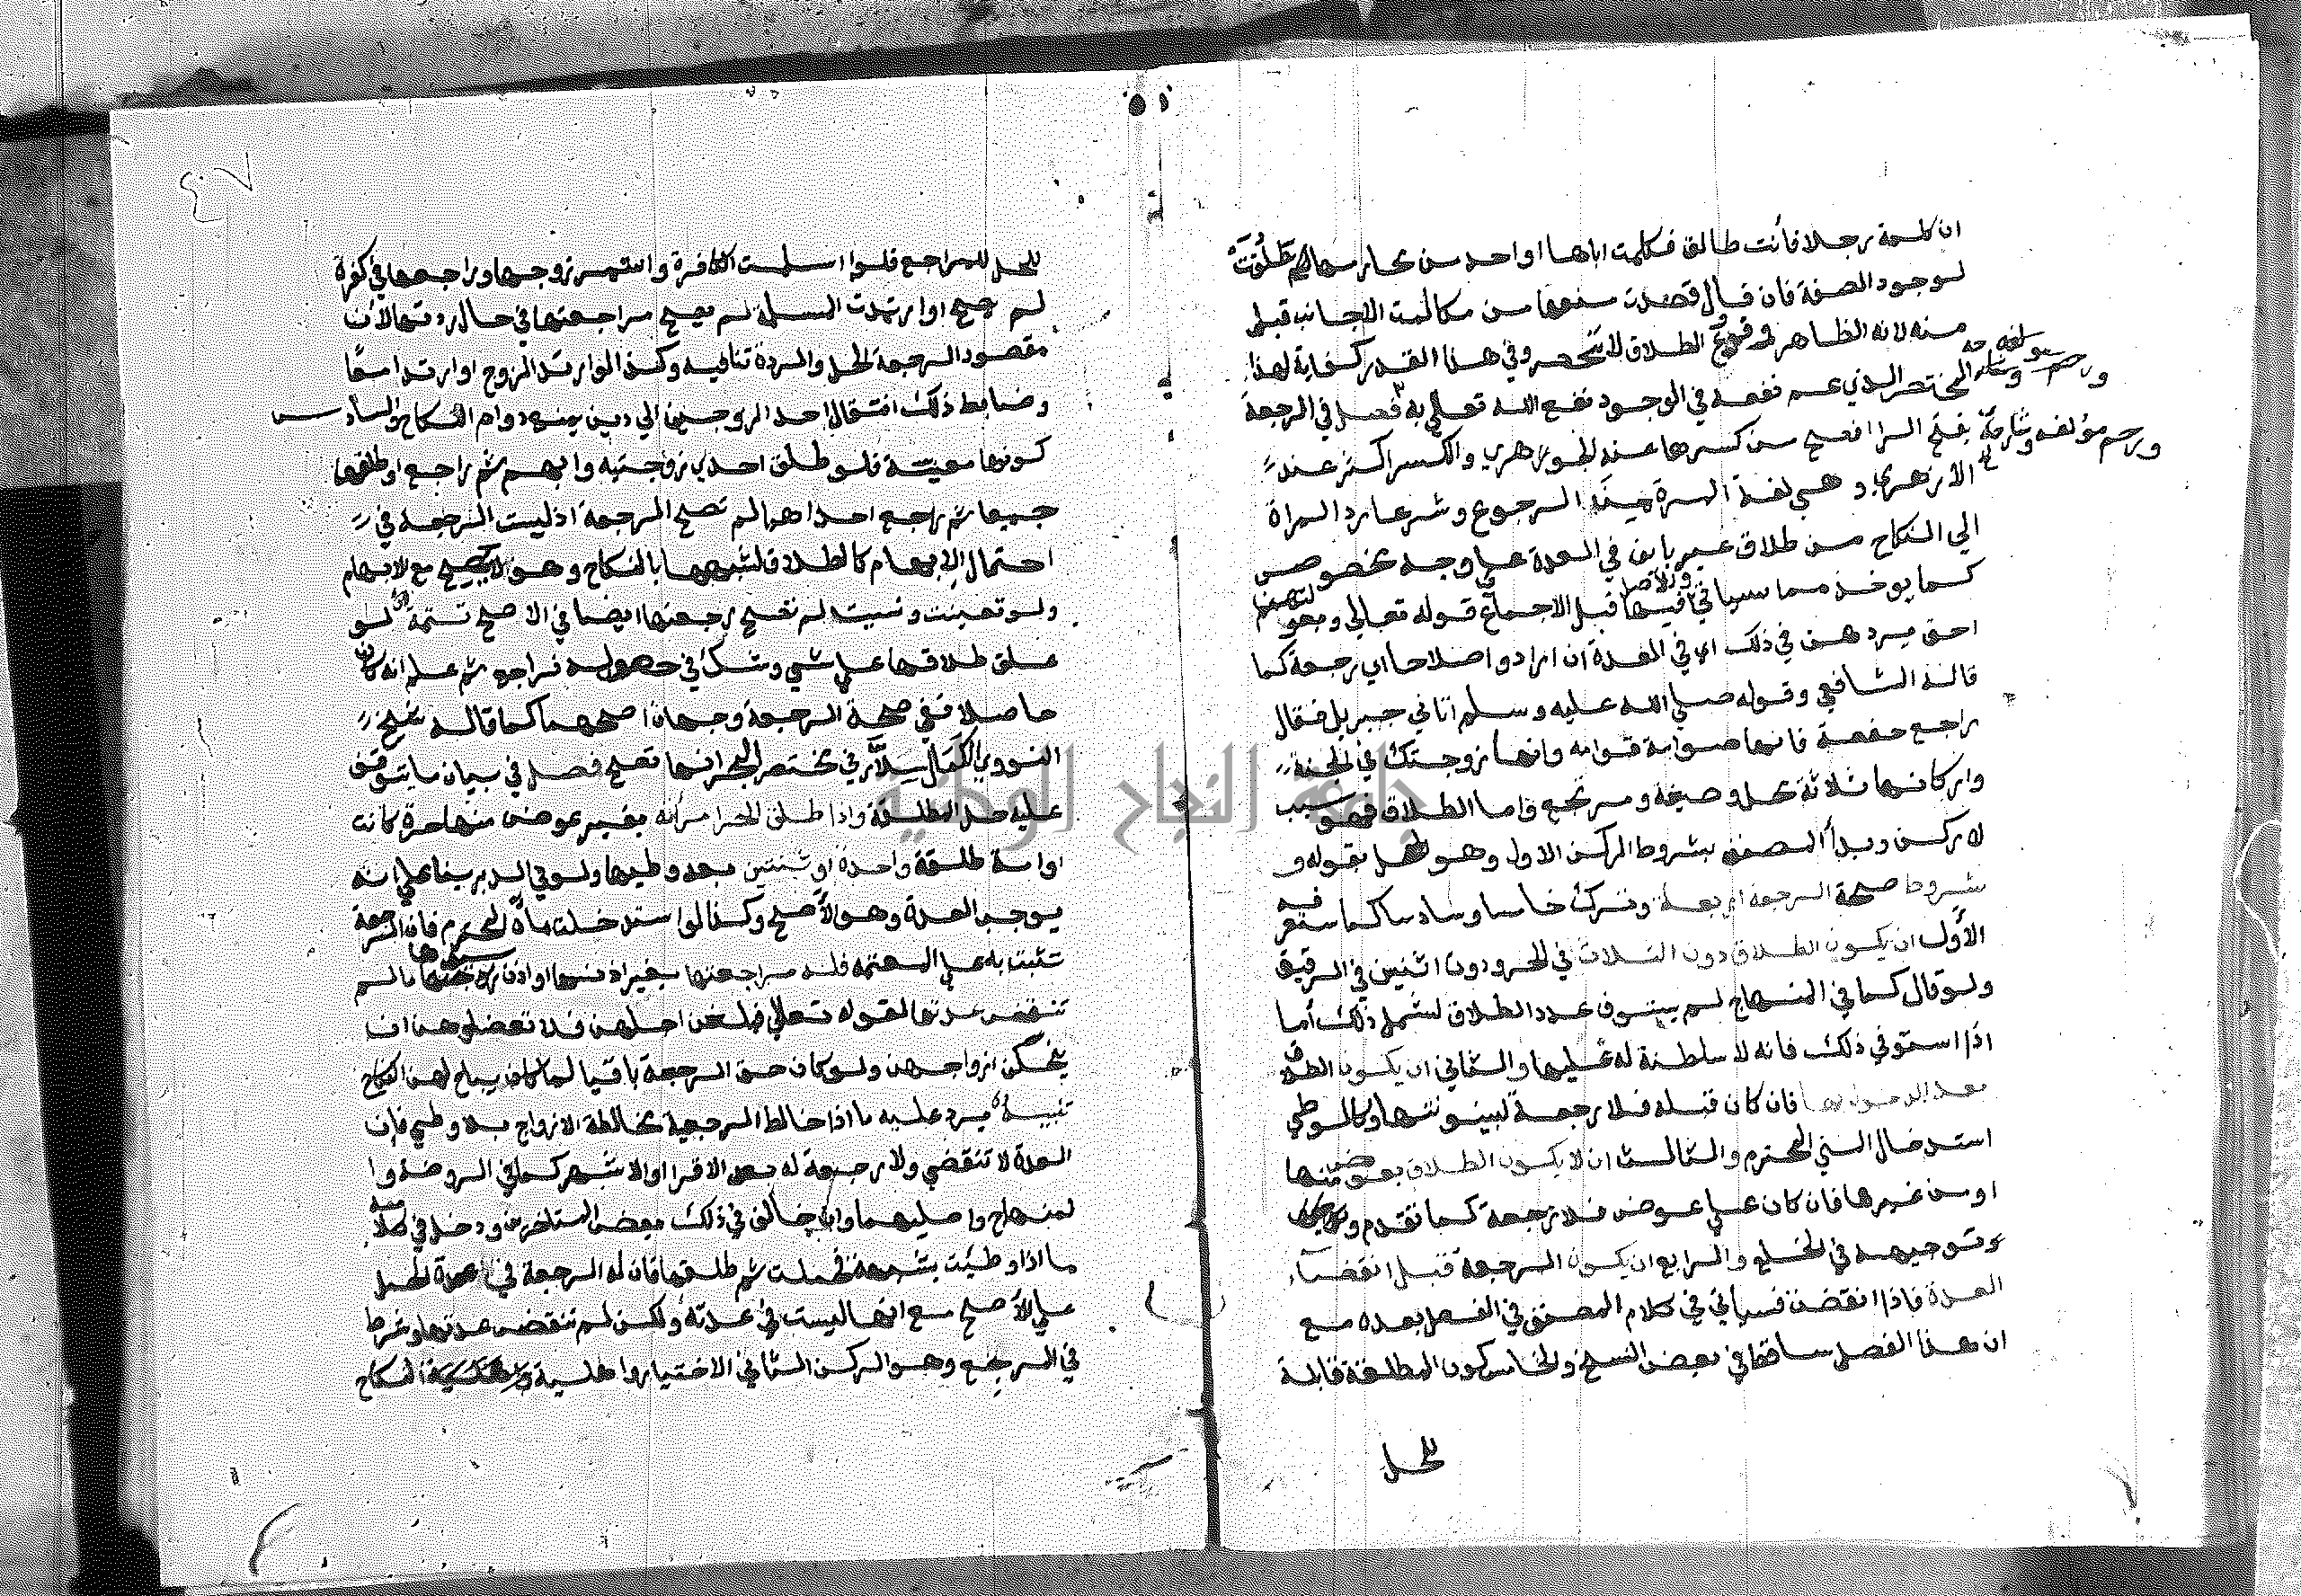 ان كلمة رجلا فأنت طالق فكلمت اباها او احد من محارمها طَلُقَتْ
لوجود الصفة فان قال قصدت منعها من مكالمت الاجانب قبل
منه لانه الظاهر وفروع الطلاق لا تنحصر وفي هذا القدر كفاية لهذا
المختصر الذي عم نفعه في الوجود نفع الله تعالي به فصل في الرجعة
ورحم مؤلفه وشارحه
بفتح الرا افصح من كسرها عند الجوهري والكسر اكثر عند
الازهري وهي لغة المرة من الرجوع وشرعا رد المراة
الي النكاح من طلاق غير باين في العدة علي وجه مخصوص
كما يوخذ مما سياتي والاصل فيها قبل الاجماع قوله تعالي وبعولتهن
احق بردهن في ذلك اي في العدة ان ارادوا اصلاحا اي رجعة كما
قاله الشافعي وقوله صلي الله عليه وسلم اتاني جبريل فقال
راجع حفصة فانها صوامة قوامه وانها زوجتك في الجنة
واركانها ثلاثة محل وصيغة ومرتجع واما الطلاق فهو سبب
لا ركن وبدأ المصنف بشروط الركن الاول وهو المحل بقوله و
شروط صحة الرجعة اربعة وترك خامسا وسادسا كما ستعرفه
الأول ان يكون الطلاق دون الثلاث في الحر ودون اثنين في الرقيق
ولو قال كما في المنهاج لم يستوف عدد الطلاق لشمل ذلك أما
اذا استوفي ذلك فانه لا سلطنة له عليها والثاني ان يكون الطلاق
بعد الدخول بها فان كان قبله فلا رجعة لبينونتها وكالوطي
استدخال المني المحترم والثالث ان لا يكون الطلاق بعوض منها
او من غيرها فان كان علي عوض فلا رجعة كما تقدم
وتوجيهه في الخلع والرابع ان يكون الرجعة قبل انقضاء
العدة فاذا انقضت فسياتي في كلام المصنف في الفصل بعده مع
ان هذا الفصل ساقط في بعض النسخ والخامس كون المطلقة قابلة
للحل
للحل للمراجع فلو اسلمت الكافرة واستمر زوجها وراجعها في كفره
لم يصح او ارتدت المسلمة لم تصح مراجعتها في حال ردتها لأن
مقصود الرجعة الحل والردة تنافيه وكذا لو ارتد الزوج او ارتدا معًا
وضابط ذلك انتقال احد الزوجين الي دين يمنع دوام النكاح والسادس
كونها معينة فلو طلق احدي زوجتيه وابهم ثم راجع او طلقهما
جميعا ثم راجع احداهما لم تصح الرجعة اذ ليست الرجعة في
احتمال الابهام كالطلاق لشبهها بالنكاح وهو لا يصح مع الابهام
ولو تعينت ونسيت لم تصح رجعتها ايضا في الاصح تتمة لو
علق طلاقها علي شي وشك في حصوله فراجع ثم علم انه كان
حاصلا ففي صحة الرجعة وجهان اصحهما كما قاله شيخ
النووي الكمال سلار في مختصر البحر انها تصح فصل في بيان ما يتوقف
عليه حل المطلقة واذا طلق الحر امرأته بغير عوض منها حرة كانت
او امة طلقة واحدة او ثنتين بعد وطيها ولو في الدبر بنا علي انه
يوجب العدة وهو الأصح وكذا لو استدخلت ماءه المحترم فان الرجعة
تثبت به علي المعتمد فله مراجعتها بغير اذنها او اذن سيدها ما لم
تنقض عدتها لقوله تعالي فبلغن اجلهن فلا تعضلوهن ان
ينكحن ازواجهن ولو كان حق الرجعة باقيا لما كان يباح لهن النكاح
تنبيه يرد عليه ما اذا خالط الرجعية مخالطة الازواج بلا وطي فان
العدة لا تنقضي ولا رجعة له بعد الاقرا او الاشهر كما في الروضة وا
لمنهاج واصليهما وان خالف في ذلك بعض المتاخرين ودخل في كلامه
ما اذا وطيت بشبهة فحملت ثم طلقها فان له الرجعة في عدة الحمل
علي الأصح مع انها ليست في عدته ولكن لم تنقض عدتها وشرط
في المرتجع وهو الركن الثاني الاختيار واهلية النكاح